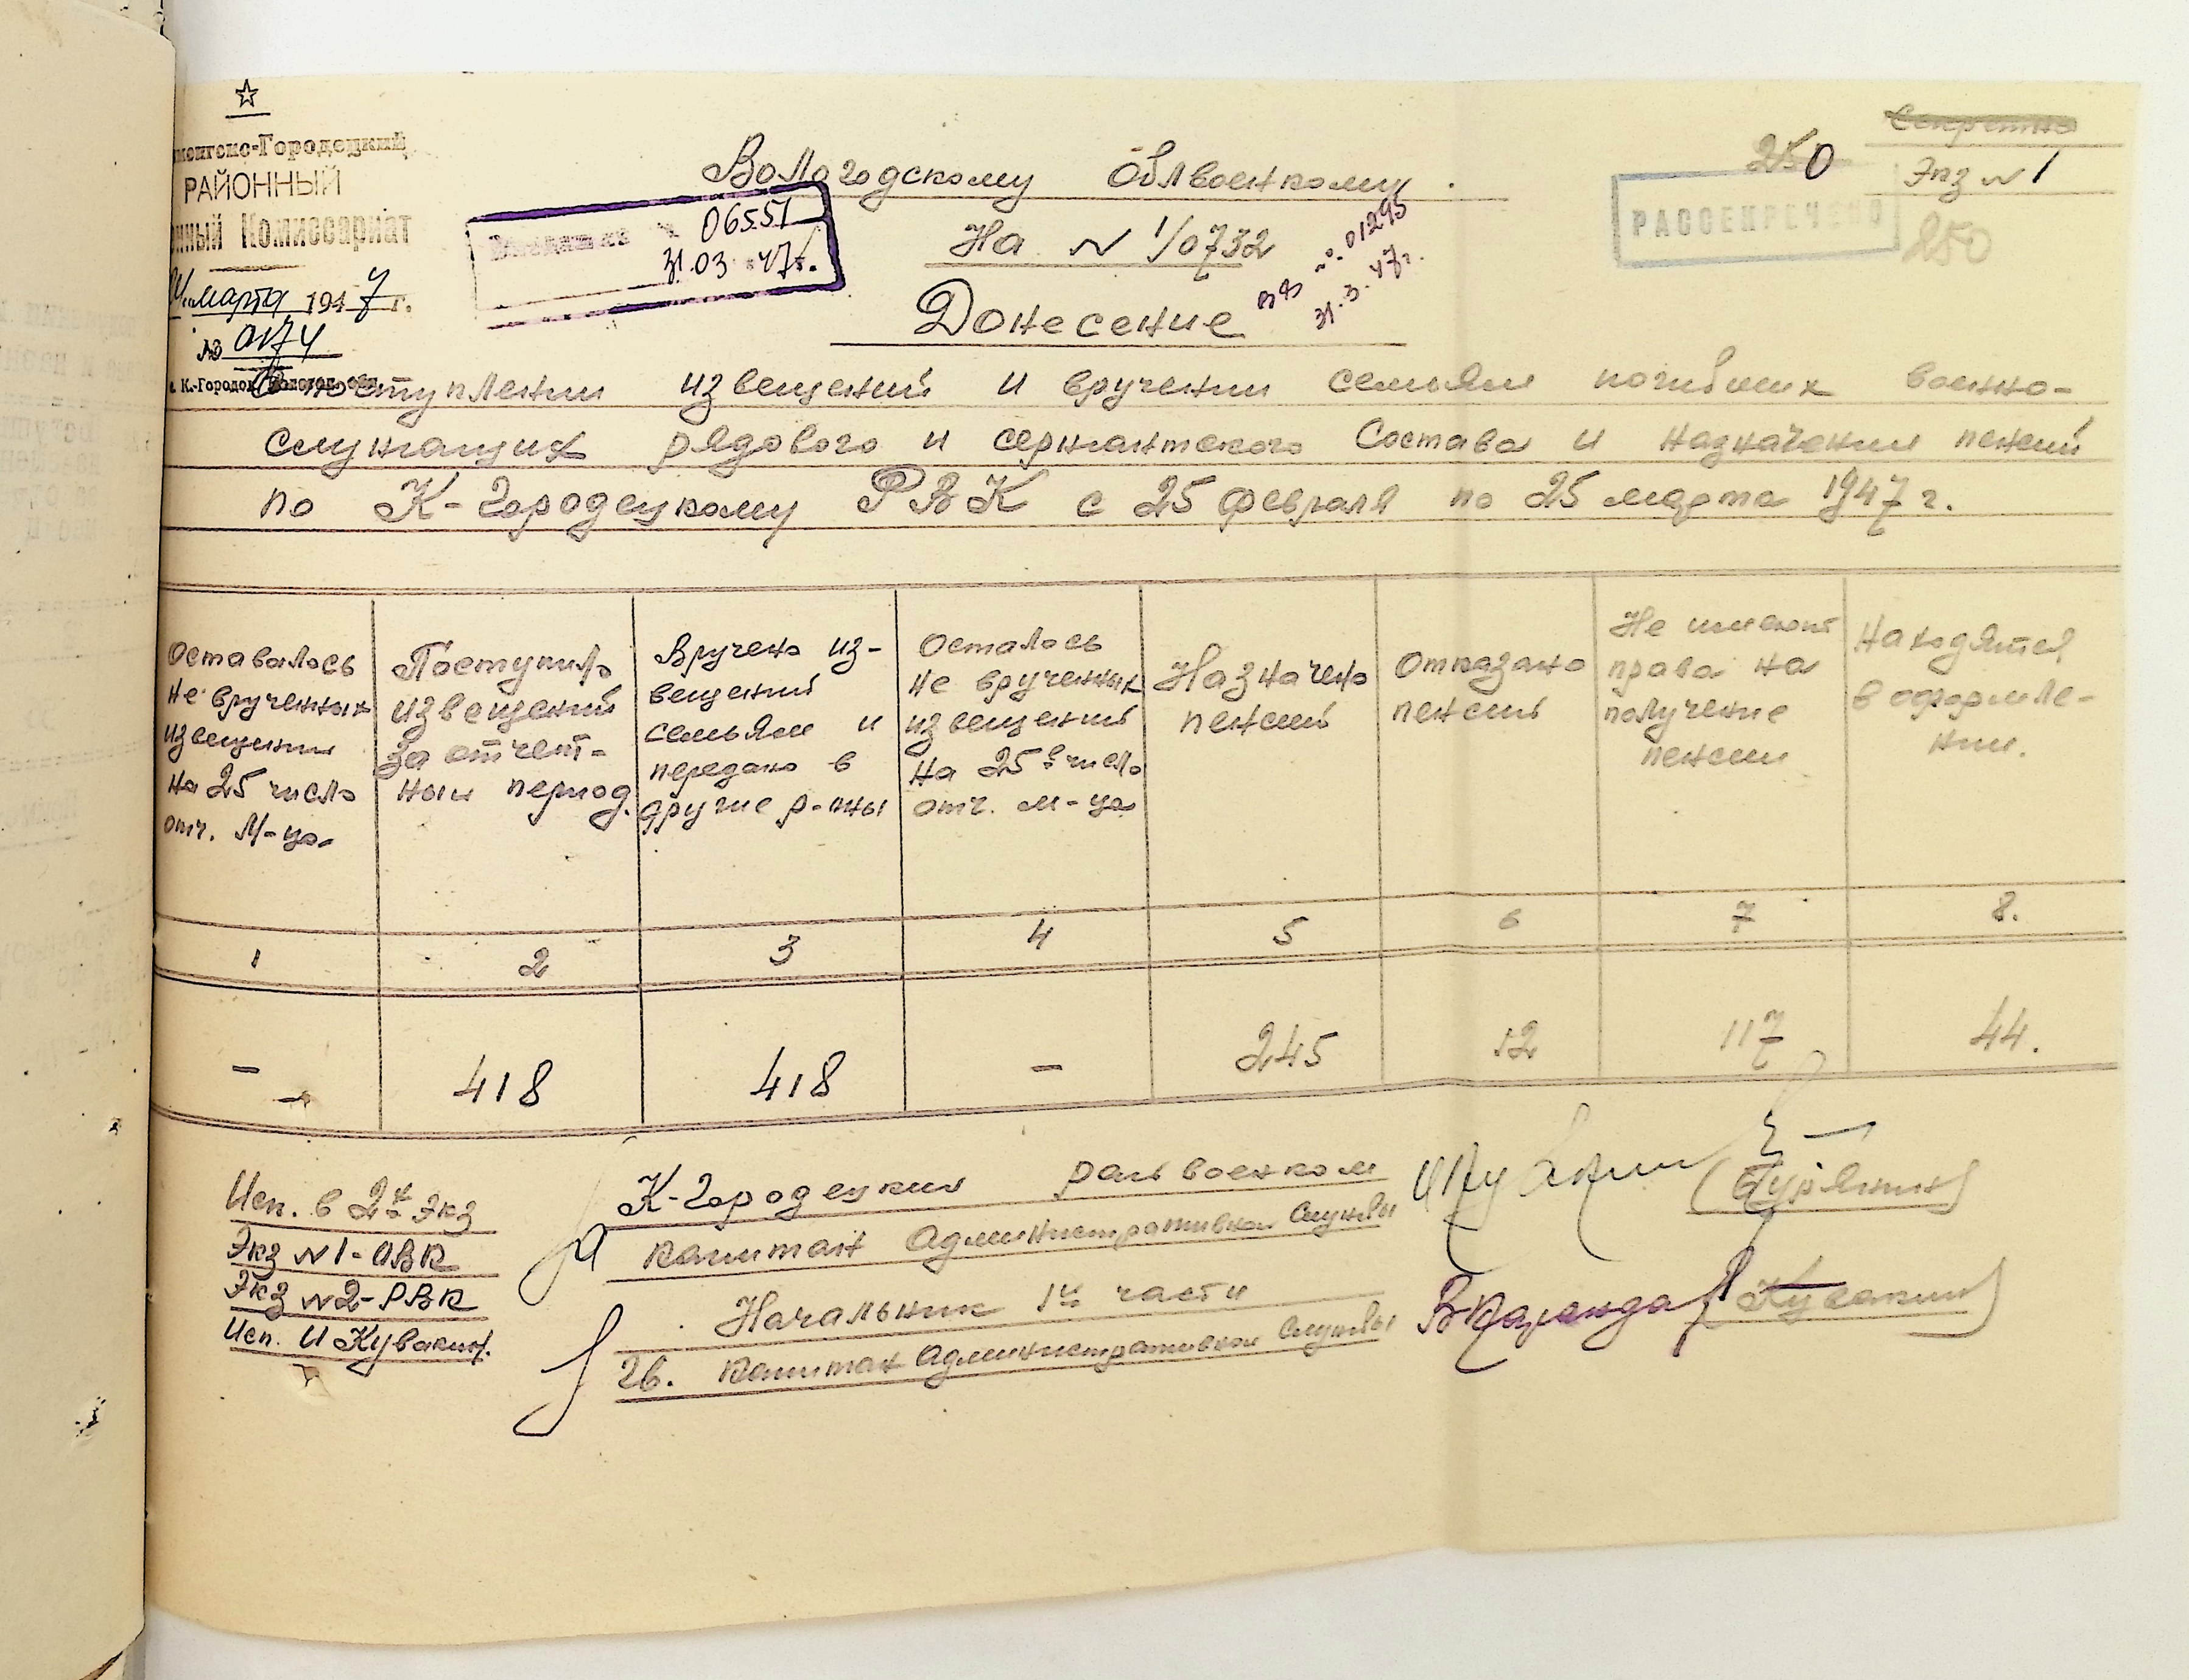 менгско-Городецкий
РАЙОННЫЙ
нный Комиссариат
марта 1947 г.
№ 0174
с. К.-Городок
Секретно
Экз № 1
250
РАССЕКРЕЧЕНО
250
Вологодскому Облвоенкому.
06551
31.03.47г.
На № 1/0732
№ 01295
31.3.47г.
Донесение
О поступлении извещений и вручении семьям погибших военно-
служащих рядового и сержантского Состава и назначении пенсий
по К-Городецкому РВК с 25 февраля по 25 марта 1947 г.
Оставалось
не врученных
извещении
на 25 число
отч. м-ца
Поступило
извещений
за отчет-
ный период.
Вручено из-
вещений
семьям и
передано в
другие р-ны
Осталось
не врученных
извещений
на 25е число
отч. м-ца
Назначено
пенсий
Отказано
пенсий
Не имеют
права на
получение
пенсии
Находятся
в оформле-
нии.
1 2 3 4 5 6 7 8.
- 418 418 - 245 12 117 44.
К-Городецкий райвоенком
капитан Административной Службы
Начальник 1й части
Гв. капитан Административной Службы
(Кувакин)
Исп. в 2х экз
Экз № 1-ОВК
Экз № 2-РВК
Исп. И Кувакин.